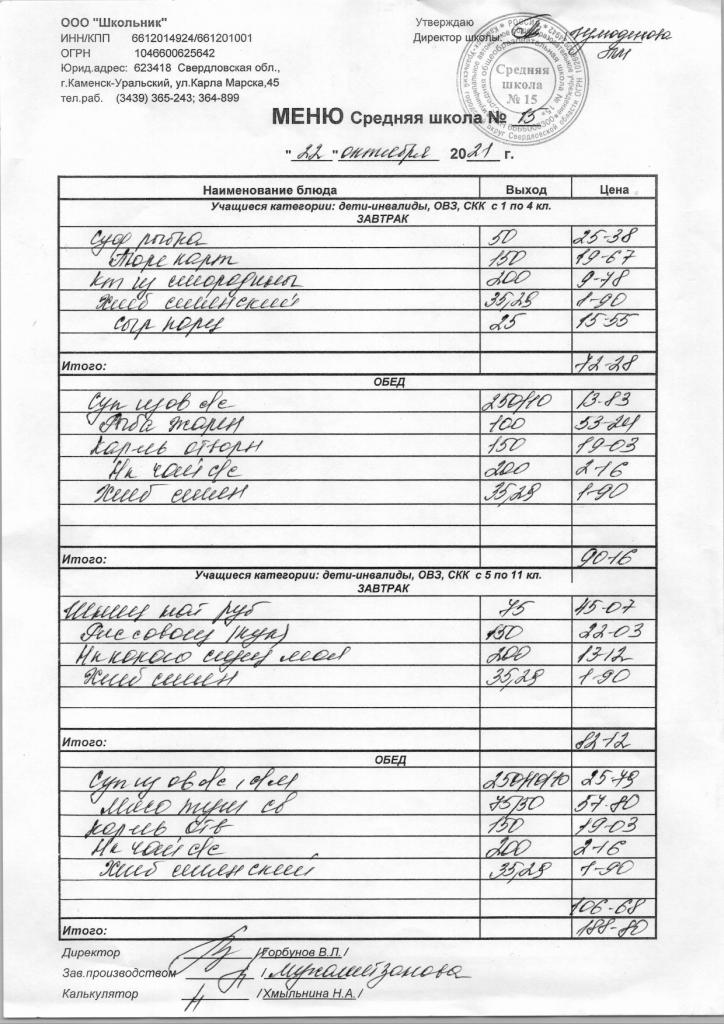 ООО "Школьник"
ИНН/КПП 6612014924/661201001
ОГРН 1046600625642
Юрид.адрес: 623418 Свердловская обл.,
г.Каменск-Уральский, ул.Карла Марска,45
тел.раб. (3439) 365-243; 364-899
Утверждаю
Директор школы:
Средняя
школа
№ 15
МЕНЮ Средняя школа № 15
"22" октября 2021 г.
Наименование блюда Выход Цена
Учащиеся категории: дети-инвалиды, ОВЗ, СКК с 1 по 4 кл.
ЗАВТРАК
Суф рыбна 50 25-38
Пюре карт 150 19-67
Кт из смородины 200 9-78
Хлеб сменский 35,29 1-90
Сыр порц 25 15-55
Итого: 72-28
ОБЕД
Суп из ов с/с 250/10 13-83
Рыба жарен 100 53-24
Карт 150 19-03
Нк чай с/с 200 2-16
Хлеб смен 35,29 1-90
Итого: 90-16
Учащиеся категории: дети-инвалиды, ОВЗ, СКК с 5 по 11 кл.
ЗАВТРАК
Шниц нат руб 75 45-07
150 22-03
Нк какао 200 13-12
Хлеб смен 35,29 1-90
Итого: 82-12
ОБЕД
Суп из ов 250/10/10 25-79
Мясо туш св 75/50 57-80
отв 150 19-03
Нк чай с/с 200 2-16
Хлеб сменский 35,29 1-90
106-68
Итого: 188-80
Директор /Горбунов В.Л./
Зав.производством /
Калькулятор /Хмыльнина Н.А./